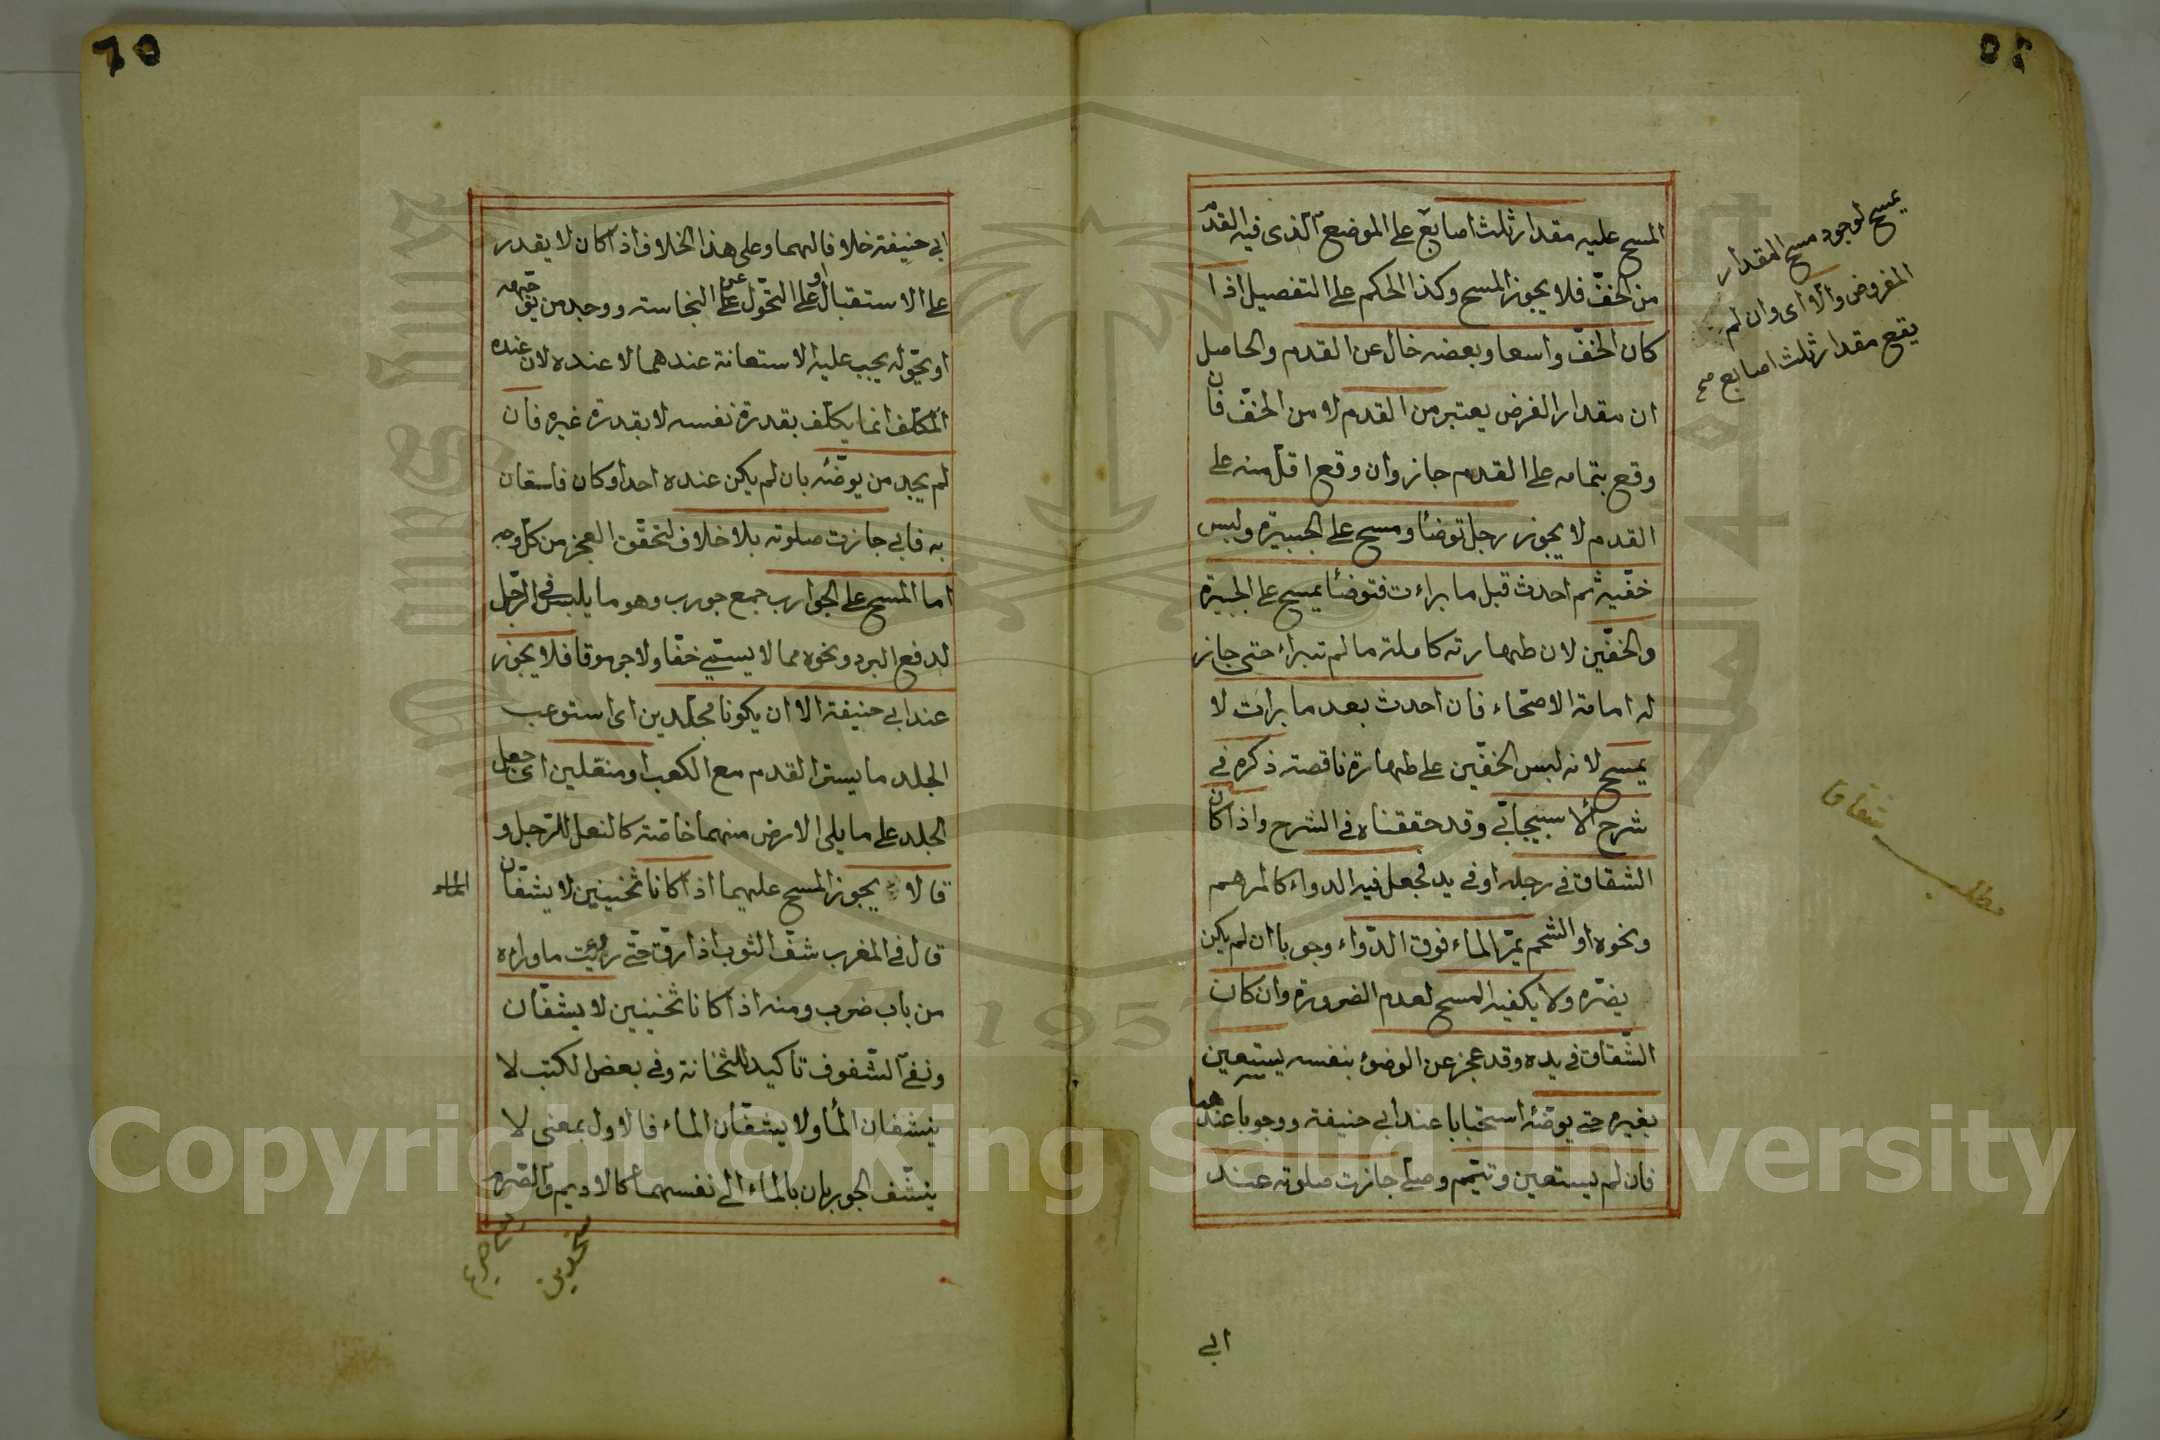 المسح عليه مقدار ثلث اصابع على الموضع الذى فيه القدم
من الخفّ فلا يجوز المسح وكذا الحكم على التفصيل اذا
كان الخفّ واسعا وبعضه خال عن القدم والحاصل
ان مقدار الفرض يعتبر من القدم لا من الخفّ فان
وقع بتمامه على القدم جاز وان وقع اقل منه على
القدم لا يجوز رجل توضأ ومسح على الجبيرة ولبس
خفّيه ثم احدث قبل ما براءت فتوضأ يمسح على الجبيرة
والخفّين لان طهارته كاملة ما لم تبراء حتى جاز
له امامة الاصحّاء فان احدث بعد ما برات لا
يمسح لانه لبس الخفّين على طهارة ناقصة ذكره فى
شرح الاسبيجابّى وقد حققناه فى الشرح واذا كان
الشقاق فى رجله او فى يد فجعل فيه الدواء كالمرهم
ونحوه او الشحم يمرّ الماء فوق الدّواء وجوبا ان لم يكن
يضرّه ولا يكفيه المسح لعدم الضرورة وان كان
الشّقاق فى يده وقد عجز عن الوضوء بنفسه يستعين
بغيره حتى يوضّئه استحبابا عند ابى حنيفة ووجوبا عندهما
فان لم يستعين وتيمّم وصلّى جازت صلوته عند
ابى
يمسح لوجود مسح المقدار
المفروض والا اى وان لم
يقع مقدار ثلث اصابع صح
مطلب شقاقا
ابى حنيفة خلافا لهما وعلى هذا الخلاف اذا كان لا يقدر
على الاستقبال او على التحّول عن النجاسة ووجد من يوجّهه
او يحّوله يجب عليه الاستعانة عندهما لا عنده لان عنده
المكلف انما يكلف بقدرة نفسه لا بقدرة غيره فان
لم يجد من يوضّئه بان لم يكن عنده احد او كان فاستعان
به فابى جازت صلوته بلا خلاف لتحقّق العجز من كلّ وجه
اما المسح على الجوارب جمع جورب وهو ما يلبس فى الرّجل
لدفع البرد ونحوه مما لا يسمّى خفّا ولا جرموقا فلا يجوز
عند ابى حنيفة الا ان يكونا مجلدين اى استوعب
الجلد ما يستر القدم مع الكعب او منعلين اى جعل
الجلد على ما يلى الارض منهما خاصّة كالنعل للرّجل و
قالا يجوز المسح عليهما اذا كانا ثخينين لا يشفّان
الماء
قال فى المغرب شفّ الثوب اذا رقّ حتّى رأيت ما وراءه
من باب ضرب ومنه اذا كانا ثخينين لا يشفّان
ونفى الشّفوف تاكيد للثخانة وفى بعض الكتب لا
ينشفان الماء ولا يشفّان الماء فالاول بمعنى لا
ينشّف الجوربان بالماء الى نفسهما كالاديم والصّرم